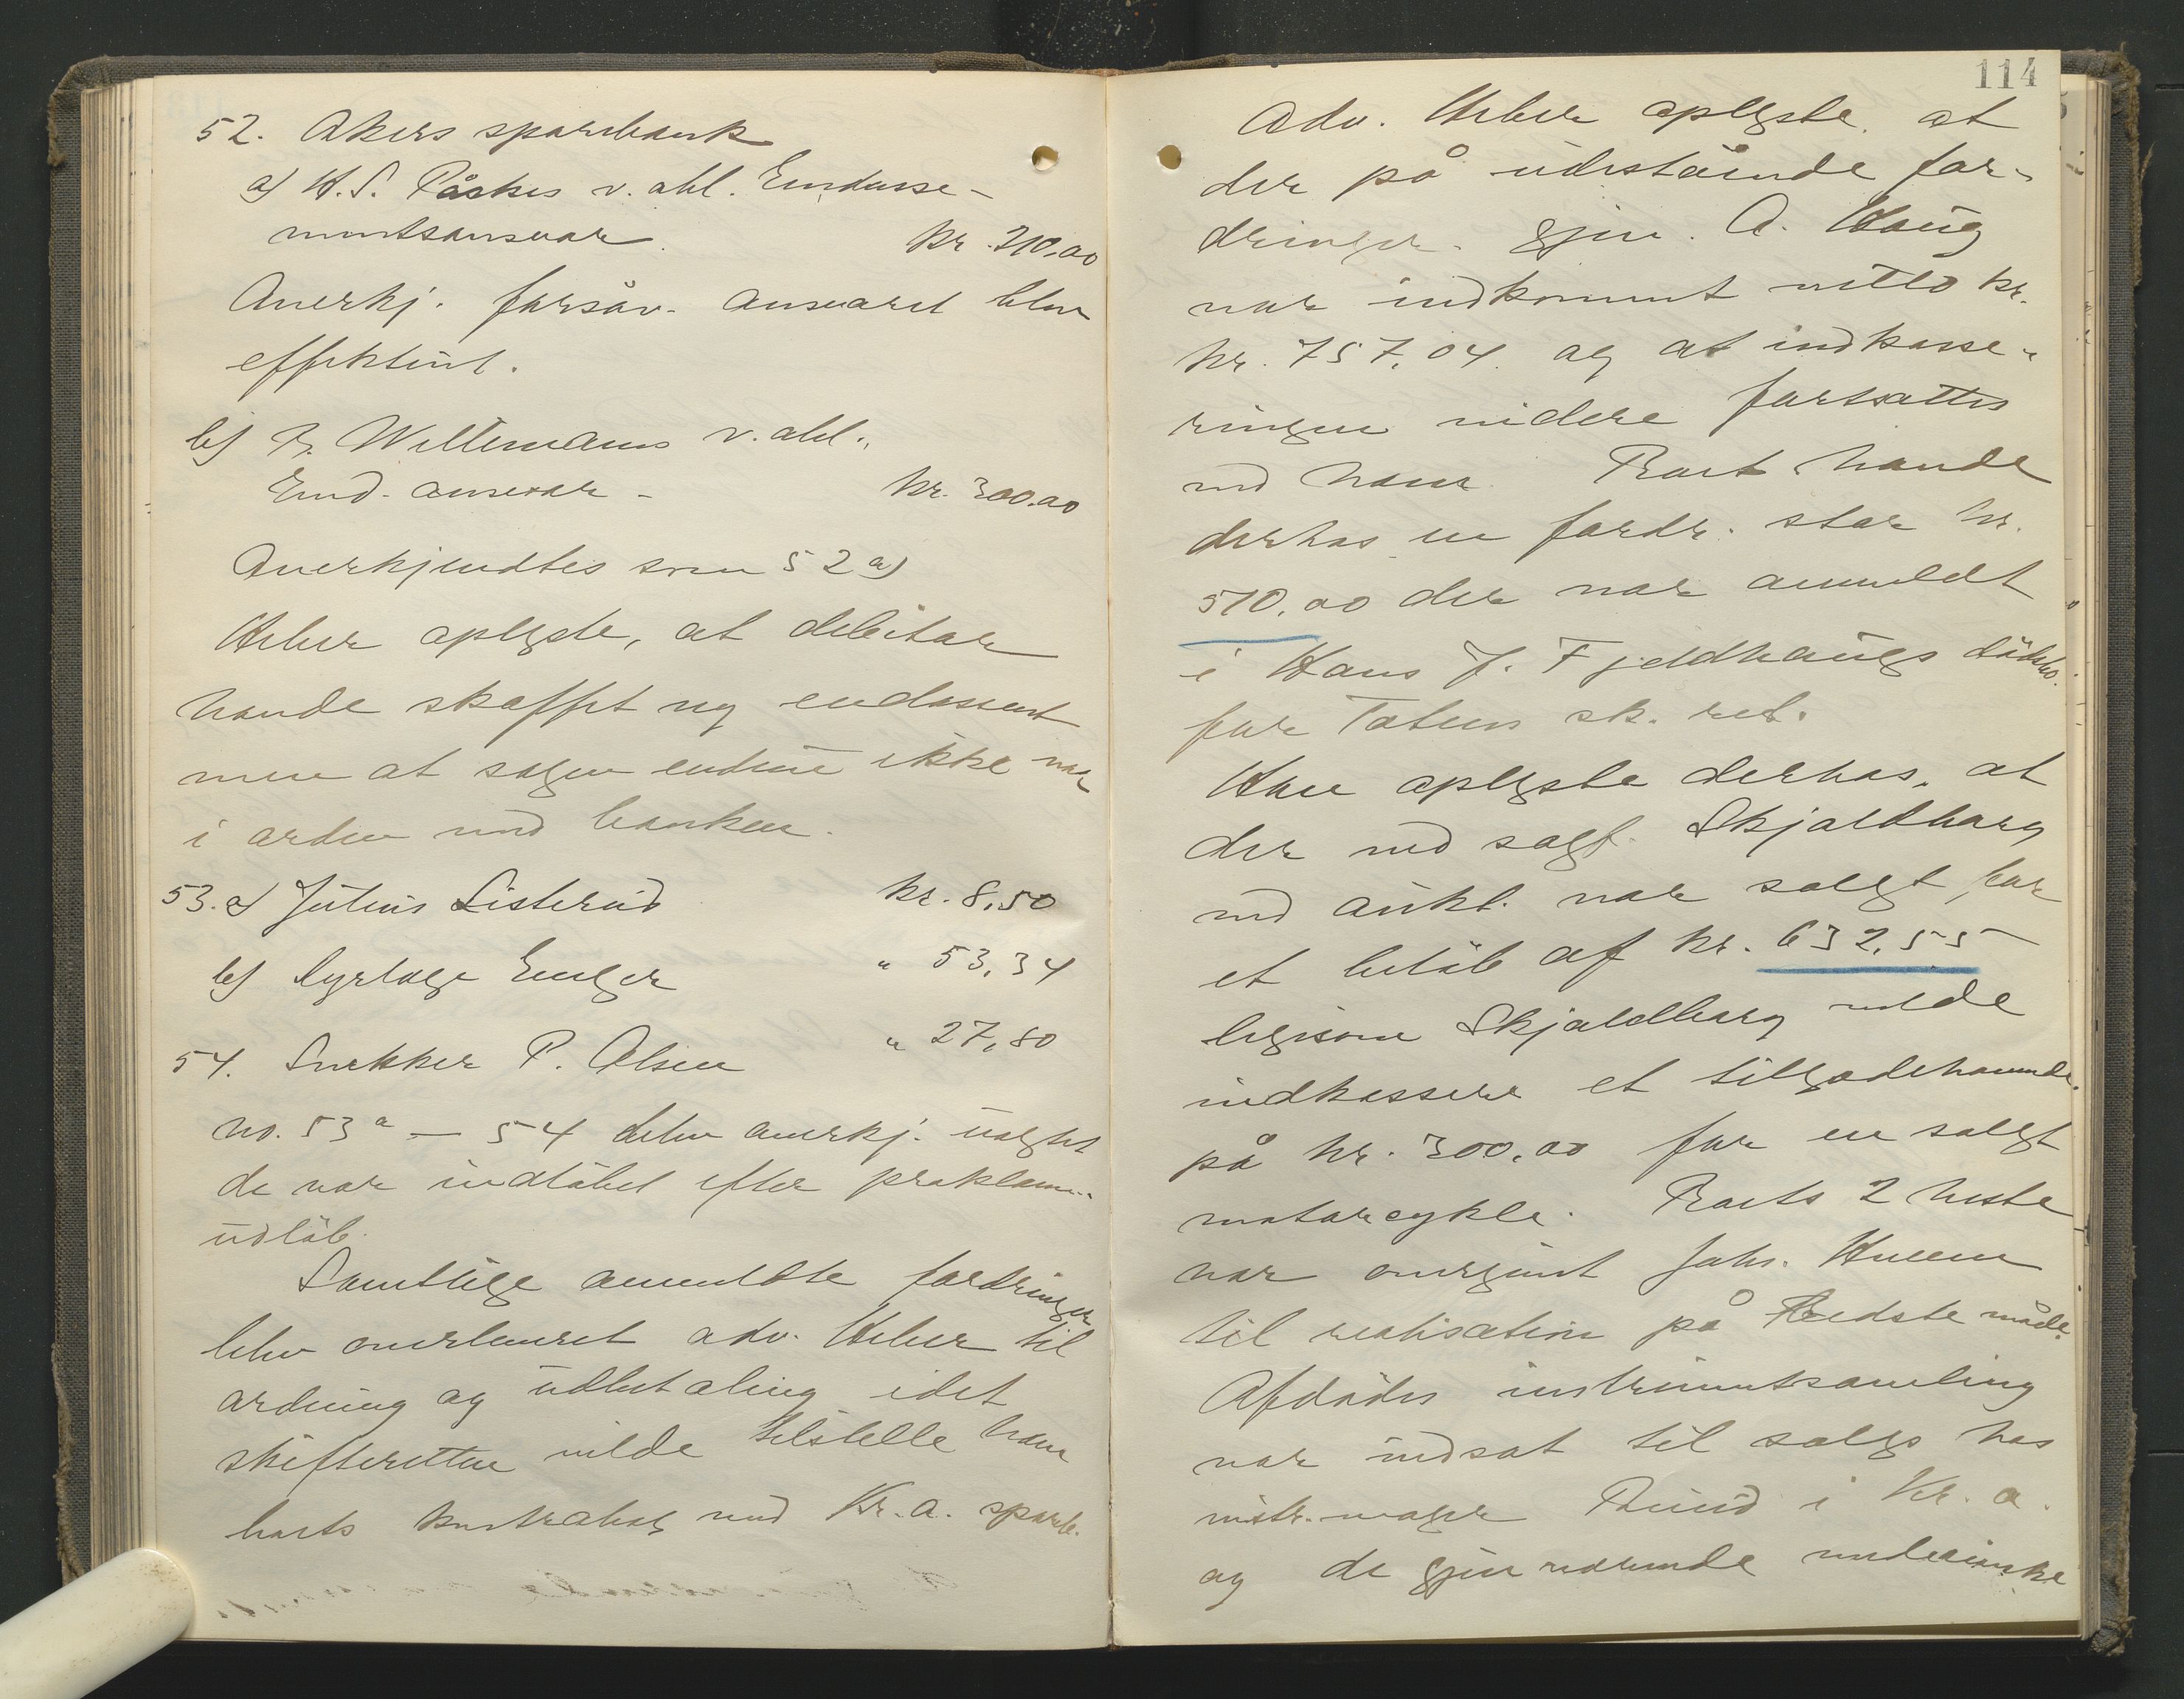 52. Akers sparebank
a) H. S. Påskes v. akl. Endosse-
mentsansvar. kr. 210,00
Anerkj. forsåv. ansvaret blev
effektivt.
b) R. Willemanns v. akl.,
End. ansvar - kr. 300.00
Anerkjendtes som 52 a)
Heber oplyste, at debitor
havde skaffet ny endossent
men at sagen endnu ikke var
i orden med banken.
53. a) Julius Listerud kr. 8,50
b) Dyrlæge Enger " 53,34
54. Snekker P. Olsen " 27,80
no. 53 a - 54 blev anerkj. uagtet
de var indløbet efter proklam..
udløb.
Samtlige anmeldte fordringer
blev overleveret adv. Heber til
ordning og udbetaling idet
skifteretten vilde tilstelle ham
boets kontrabog med Kr.a. spareb.
114
Adv. Heber oplyste, at
der på udestående for-
dringer. gjen. A. Haug
var indkommet netto kr.
kr. 757,04 og at indkasse-
ringen videre fortsattes
ved ham. Boet havde
derhos en fordr. stor kr.
510,00 der var anmeldt
i Hans J. Fjeldhaugs dødsbo.
for Toten sk. ret.
Han oplyste derhos, at
der ved sagf. Skjoldborg
ved aukt. var solgt for
et beløb af kr. 632,55
ligesom Skjoldborg vilde
indkassere et tilgodehavende
på kr. 300,00 for en solgt
motorcykle. Boets 2 heste
var overgivet Johs. Hveem
til realisation på bedste måde.
Afdødes instrumentsamling
var indsat til salgs hos
instr.mager Ruud i Kr.a.
og de gjenværende